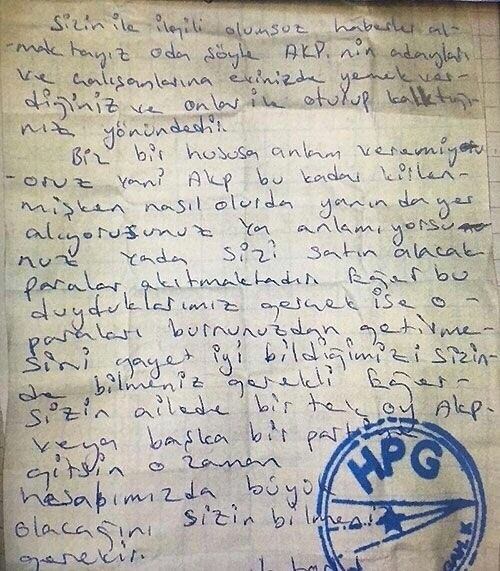 Sizin ile ilgili olumsuz haberler al-
-maktayız oda şöyle AKP.nin adayları
ve çalışanlarına evinizde yemek ver-
diğiniz ve onlar ile oturup kalktığı-
nız yönündedir.
Biz bir hususa anlam veremiy
-oruz yani AKP bu kadar kirlen-
mişken nasıl olurda yanında yer
alıyorsunuz ya anlamıyorsu
nuz yada sizi satın alacak
paralar akıtmaktadır Eğer bu
duyduklarımız gerçek ise o-
paraları burnunuzdan getirme-
sini gayet iyi bildiğimizi sizin-
de bilmeniz gerekli Eğer-
sizin ailede bir tek oy AKP-
veya başka bir
gitsin o zaman
hesabımızda büyük
olacağını sizin
gerekir.
HPG